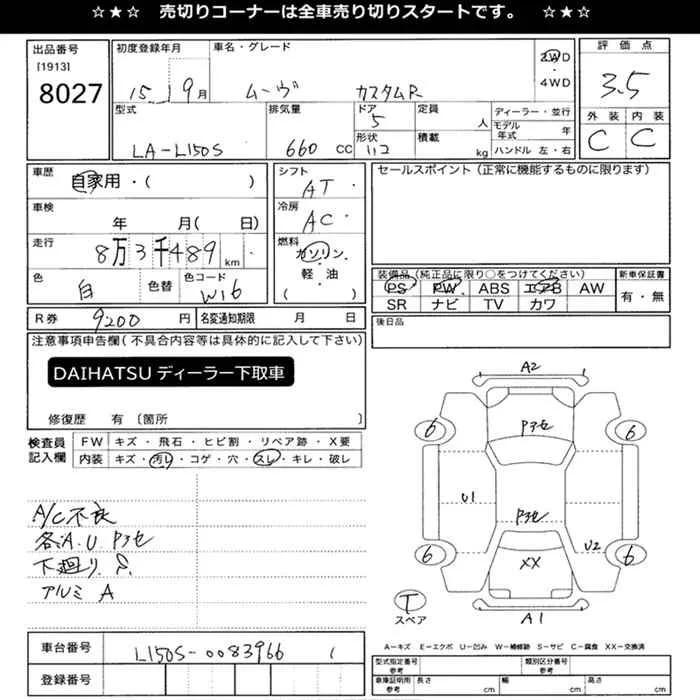 ☆ ★ ☆ 売切りコーナーは全車売り切りスタートです。 ☆ ★ ☆
出品番号
[1913]
8027
初度登録年月
15 9月
車名・グレード
ムーヴ カスタムR
2WD
・
4WD
評価点
3.5
外装 内装
C C
型式
LA-L150S
排気量
660 CC
ドア
5
形状
定員
人
積載
kg
ディーラー・並行
モデル年式 年
ハンドル 左・右
車歴
自家用・( )
車検
年 月( 日)
走行
8万3千489 km
色
白
色替
色コード
W16
シフト
AT
冷房
AC
燃料
ガソリン・
軽・油
( )
セールスポイント(正常に機能するものに限ります)
装備品(純正品に限り○をつけてください)
PS PW ABS エアB AW
SR ナビ TV カワ
新車保証書
有・無
後日品
R券 9200 円
名変通知期限 月 日
注意事項申告欄(不具合内容等は具体的に記入して下さい)
DAIHATSU ディーラー下取車
修復歴 有〔箇所 〕
検査員
記入欄
FW キズ・飛石・ヒビ割・リペア跡・X要
内装 キズ・汚レ・コゲ・穴・スレ・キレ・破レ
A/C不良
各A.U Pアセ
下廻り S.
アルミ A
A2
6 Pアセ 6
U1 Pアセ
U2
6 XX 6
T
スペア
A1
車台番号 L150S-0083966
登録番号
A－キズ E－エクボ U－凹み W－補修跡 S－サビ C－腐食 XX－交換済
型式指定番号
参考
類別区分番号
参考
車庫証明用
参考
長さ cm 幅 cm 高さ cm